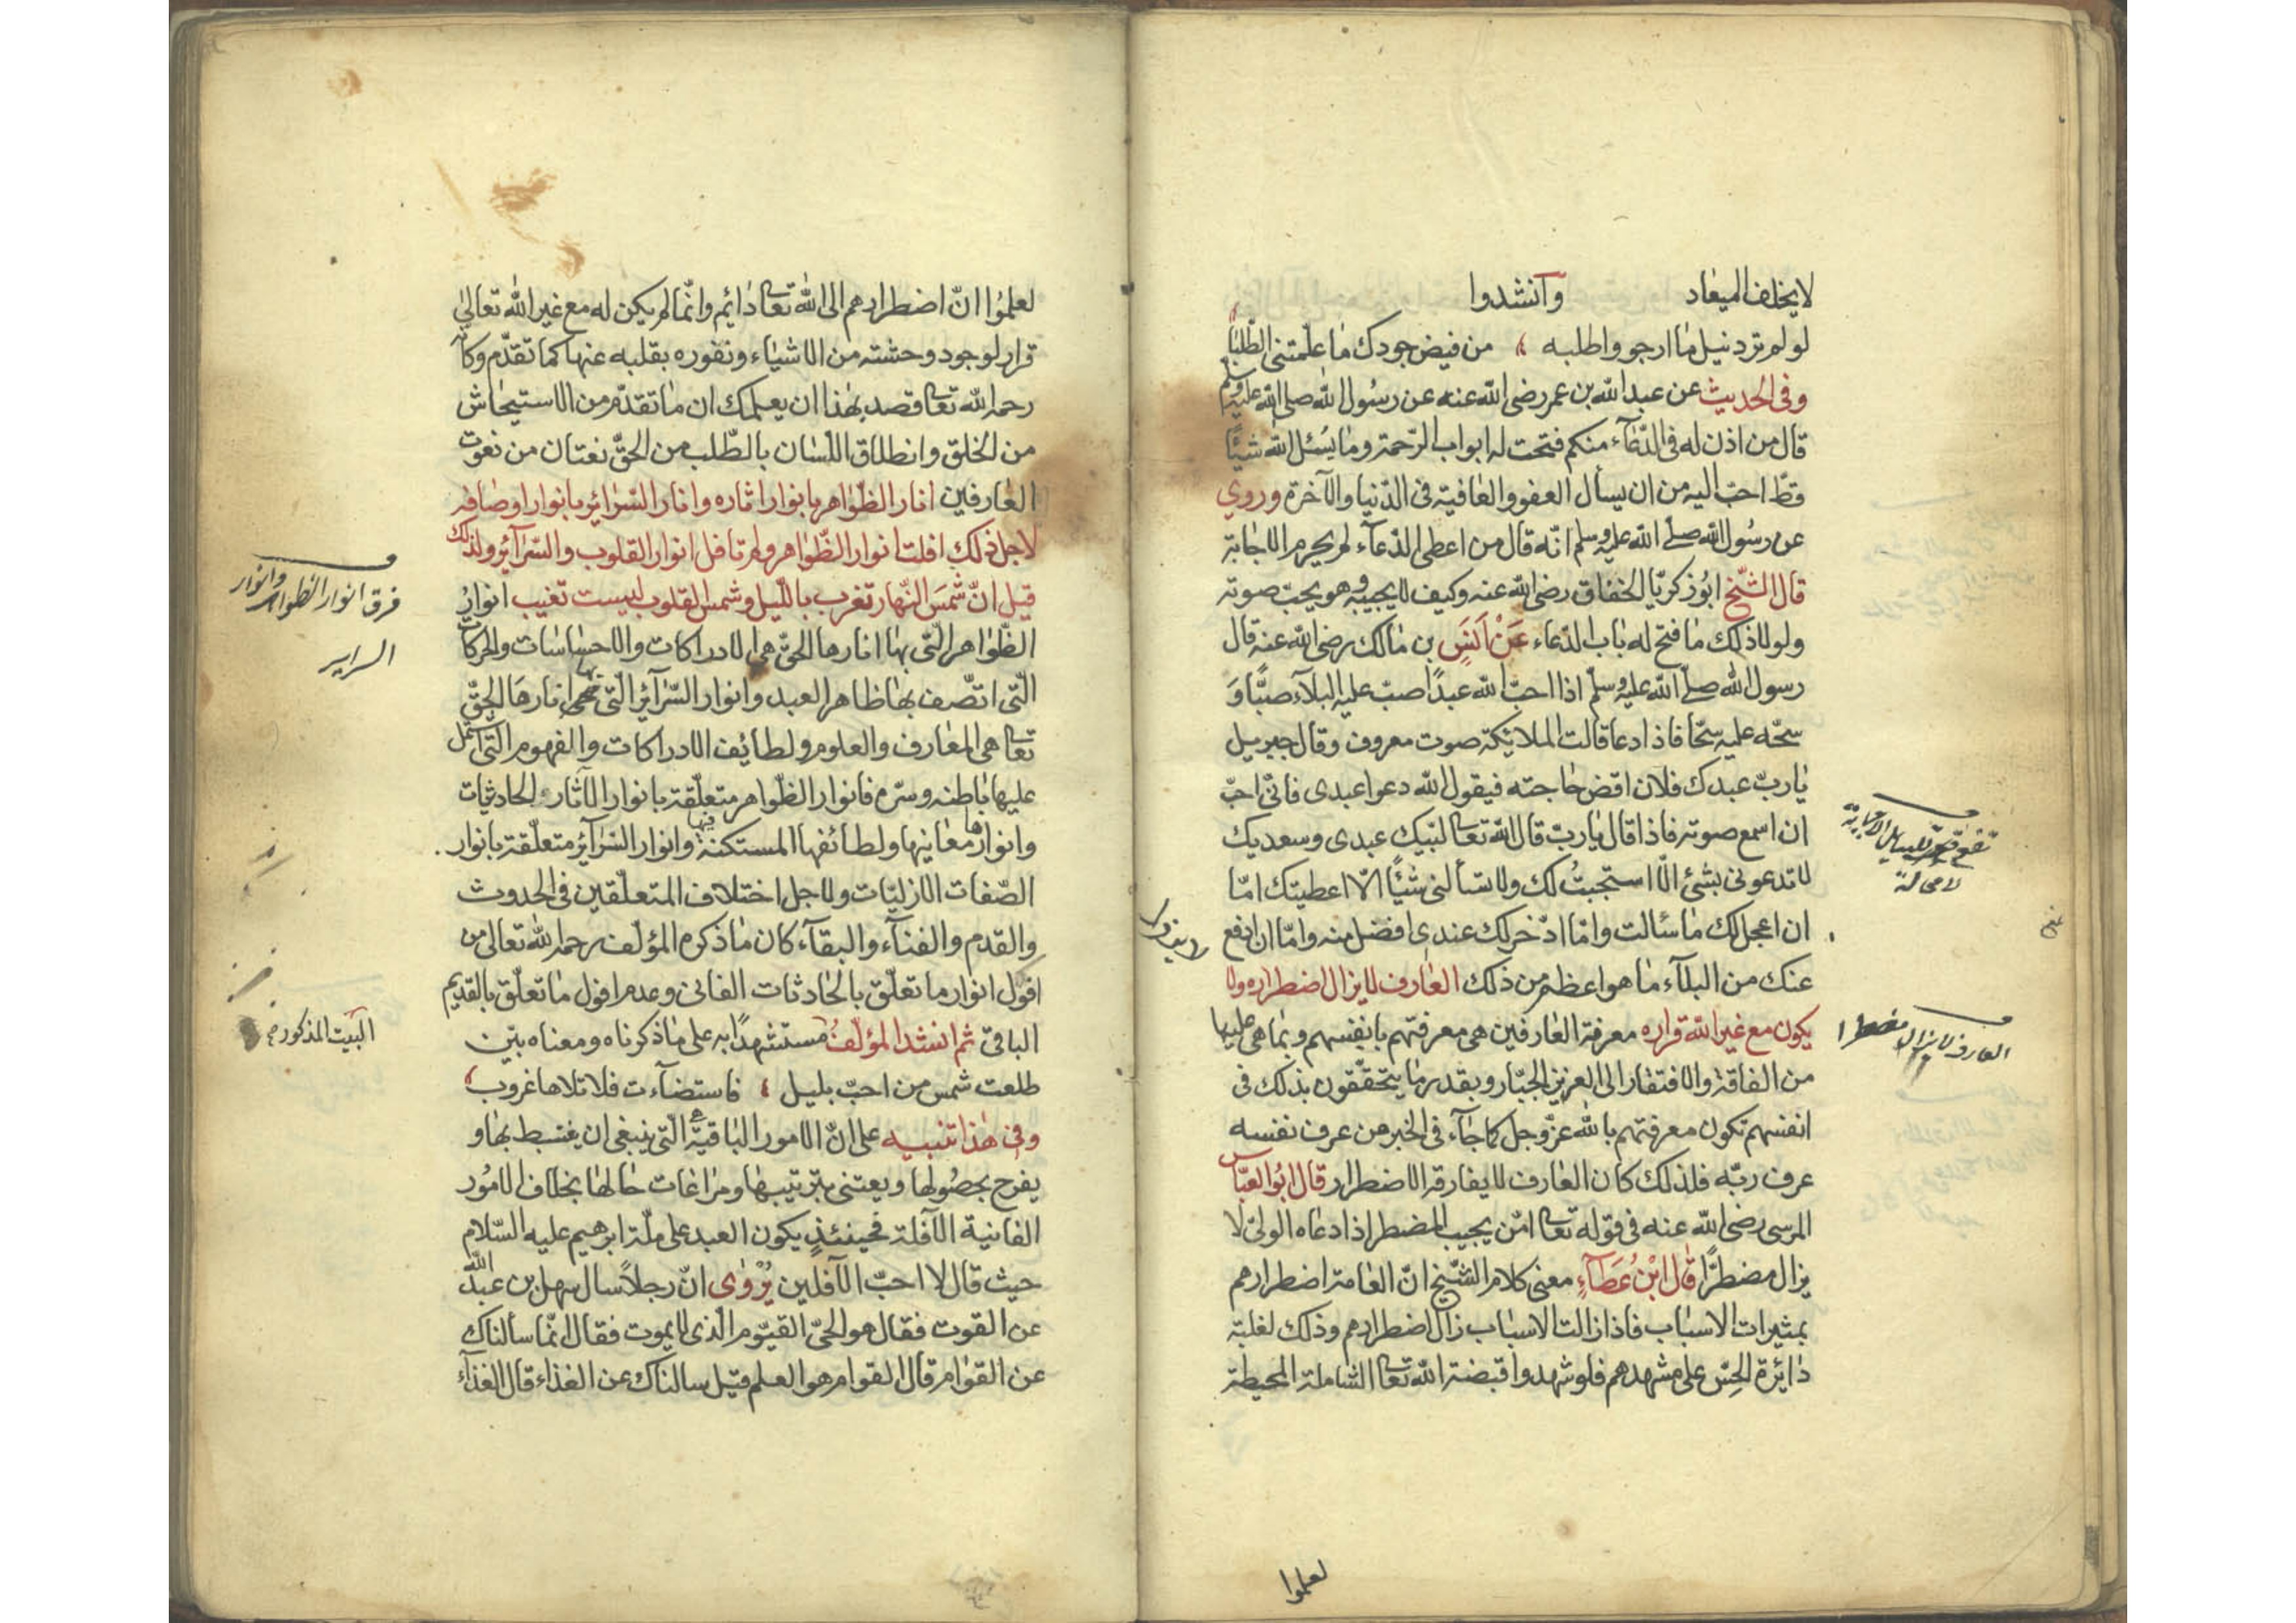 لا يخلف الميعاد وآنشدوا
لو لم ترد نيل ما ارجو واطلبه ، من فيض جودك ما علمتني الطلبا
وفى الحديث عن عبد الله بن عمر رضى الله عنه عن رسول الله صلى الله عليه وسلم
قال من اذن له فى الدعاء منكم فتحت له ابواب الرحمة وما يسئل الله شيئًا
قط احب اليه من ان يسأل العفو والعافية فى الدنيا والآخرة وروي
عن رسول الله صلى الله عليه وسلم انه قال من اعطى الدعاء لم يحرم الاجابة
قال الشيخ ابو زكريا الخفاق رضى الله عنه وكيف لا يجيبه وهو يحب صوته
ولولا ذلك ما فتح له باب الدعاء عَنْ اَنَسٍ بن مالك رضى الله عنه قال
رسول الله صلى الله عليه وسلم اذا احب الله عبدًا صب عليه البلاء صبًّا وَ
سحّه عليه سحّا فاذا دعا قالت الملائكة صوت معروف وقال جبريل
يا رب عبدك فلان اقض حاجته فيقول الله دعوا عبدى فانى احب
ان اسمع صوته فاذا قال يا رب قال الله تعالى لبيك عبدى وسعديك
لا تدعونى بشئ الا استجبتُ لك ولا تسألنى شيئًا الا اعطيتك اما
ان اعجل لك ما سألت واما ادخر لك عندى افضل منه واما ان ادفع
عنك من البلاء ما هو اعظم من ذلك العارف لا يزال اضطراره ولا
يكون مع غير الله قراره معرفة العارفين هى معرفتهم بانفسهم وبما هى عليها
من الفاقة والافتقار الى العزيز الجبار وبقدر ما يتحققون بذلك فى
انفسهم تكون معرفتهم بالله عز وجل كما جاء فى الخبر من عرف نفسه
عرف ربه فلذلك كان العارف لا يفارقه الاضطرار قال ابو العباس
المرسى رضى الله عنه فى قوله تعالى امّن يجيب المضطر اذا دعاه الولى لا
يزال مضطرًّا قال ابْنُ عَطَآءٍ معنى كلام الشيخ ان العامة اضطرارهم
بمثيرات الاسباب فاذا زالت الاسباب زال اضطرارهم وذلك لغلبة
دائرة الحس على مشهدهم فلو شهدوا قبضة الله تعالى الشاملة المحيطة
لعلموا
العارف لا يزال مضطرا
لا محالة
لعلمُوا ان اضطرارهم الى الله تعالى دائم وانما لم يكن له مع غير الله تعالى
قرار لوجود وحشته من الاشياء ونفوره بقلبه عنها كما تقدم وكأنه
رحمه الله تعالى قصد بهذا ان يعلمك ان ما تقدم من الاستيحاش
من الخلق وانطلاق اللسان بالطلب من الحق نعتان من نعوت
العارفين انار الظواهر بانوار اثاره وانار السرائر بانوار اوصافه
لاجل ذلك افلت انوار الظواهر ولم تافل انوار القلوب والسرآئر ولذلك
قيل ان شمسَ النهار تغرب بالليل وشمس القلوب ليست تغيب انوار
الظواهر التى بها انارها الحق هى الادراكات والاحساسات والحركات
التى اتصف بها ظاهر العبد وانوار السرآئر التى بها انارها الحق
تعالى هى المعارف والعلوم ولطايف الادراكات والفهوم التى اشتمل
عليها باطنه وسره فانوار الظواهر متعلقة بانوار الآثار الحادثات
وانوارها معانيها ولطائفها المستكنة فيها وانوار السرآئر متعلقة بانوار
الصفات الازليات ولاجل اختلاف المتعلقين فى الحدوث
والقدم والفناء والبقآء كان ما ذكره المؤلف رحمه الله تعالى من
افول انوار ما تعلق بالحادثات الفانى وعدم افول ما تعلق بالقديم
الباقى ثم انشد المؤلفُ مستشهدًا به على ما ذكرناه ومعناه بين
طلعت شمس من احب بليل ، فاستضآءت فلا تلاها غروب
وفى هذا تنبيه على ان الامور الباقية التى ينبغى ان يغتبط بها و
يفرح بحصولها ويعتنى بترتيبها ومراعات حالها بخلاف الامور
الفانية الآفلة فحينئذٍ يكون العبد على ملة ابرهيم عليه السلام
حيث قال لا احب الآفلين يُرْوٰى ان رجلاً سال سهل بن عبد الله
عن القوت فقال هو الحى القيوم الذى لا يموت فقال انما سألناك
عن القوام قال القوام هو العلم قيل سالناك عن الغذاء قال الغذآء
فرق انوار الظواهر وانوار
السراير
البيت المذكورة